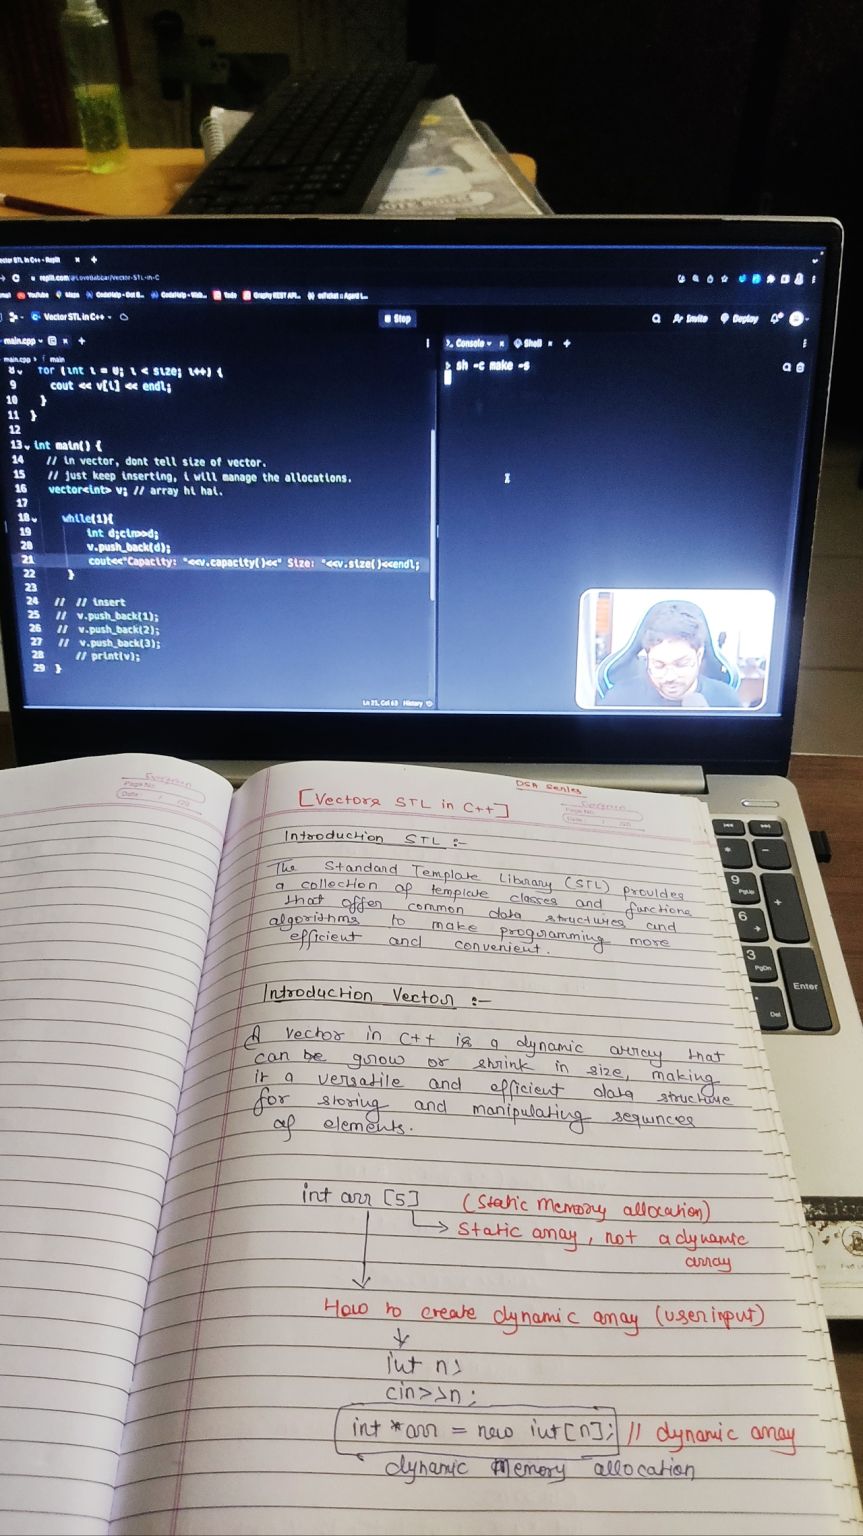 Vector STL in C++ - Replit
replit.com/@LoveBabbar/Vector-STL-in-C
YouTube Maps CodeHelp - Dot B... CodeHelp - Web... Todo Graphy REST API... osTicket :: Agent L...
Vector STL in C++
Stop
Invite Deploy
main.cpp
Console Shell
main.cpp > main
sh -c make -s
8 for (int i = 0; i < size; i++) {
9 cout << v[i] << endl;
10 }
11 }
12
13 int main() {
14 // in vector, dont tell size of vector.
15 // just keep inserting, i will manage the allocations.
16 vector<int> v; // array hi hai.
17
18 while(1){
19 int d;cin>>d;
20 v.push_back(d);
21 cout<<"Capacity: "<<v.capacity()<<" Size: "<<v.size()<<endl;
22 }
23
24 // // insert
25 // v.push_back(1);
26 // v.push_back(2);
27 // v.push_back(3);
28 // print(v);
29 }
Ln 21, Col 63 History
DSA Series
Page No.
Date: / /20
Page No.
Date: / /20
[Vectors STL in C++]
Introduction STL :-
The Standard Template Library (STL) provides
a collection of template classes and functions
that offer common data structures and
algorithms to make programming more
efficient and convenient.
Introduction Vector :-
A vector in C++ is a dynamic array that
can be grow or shrink in size, making
it a versatile and efficient data structure
for storing and manipulating sequnces
of elements.
int arr [5] (Static Memory allocation)
Static array, not a dynamic
array
How to create dynamic array (user input)
int n;
cin>>n;
int *arr = new int[n]; // dynamic array
dynamic Memory allocation
9
PgUp
6
3
PgDn
Enter
Del
*
-
+